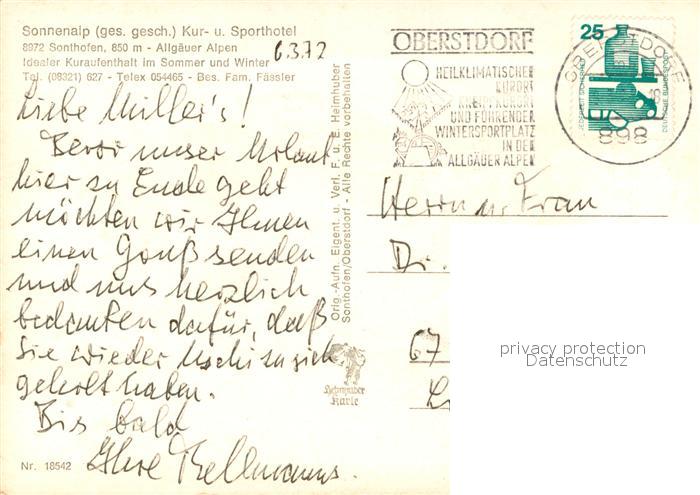 Sonnenalp (ges. gesch.) Kur- u. Sporthotel
8972 Sonthofen, 850 m - Allgäuer Alpen
Idealer Kuraufenthalt im Sommer und Winter
Tel. (08321) 627 - Telex 054465 - Bes. Fam. Fässler
6.3.72
Liebe Miller's!
Bevor unser Urlaub
hier zu Ende geht
möchten wir Ihnen
einen Gruß senden
und uns herzlich
bedanken dafür, daß
Sie wieder Uschi zu sich
geholt haben.
Bis bald
Ihre Bellmanns.
Nr. 18542
Orig.-Aufn. Eigent. u. Verl. F. u. E. Heimhuber
Sonthofen/Oberstdorf - Alle Rechte vorbehalten
Heimhuber
Karte
OBERSTDORF
HEILKLIMATISCHER
KURORT
KNEIPPKURORT
UND FÜHRENDER
WINTERSPORTPLATZ
IN DEN
ALLGÄUER ALPEN
25
JEDERZEIT SICHERHEIT
DEUTSCHE BUNDESPOST
OBERSTDORF
898
Herrn u. Frau
Dr.
67
privacy protection
Datenschutz